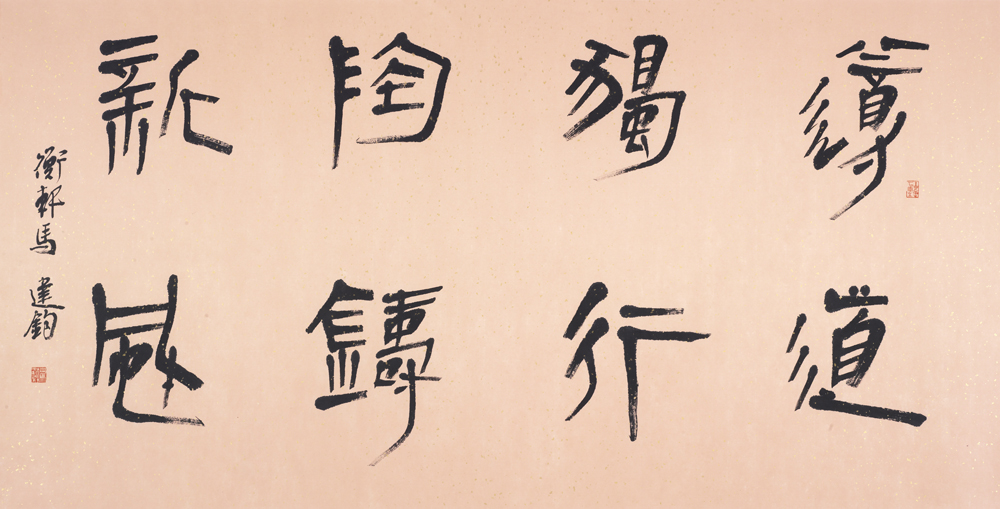 遵道
獨行
陶鑄
新
衡軒馬建鈞